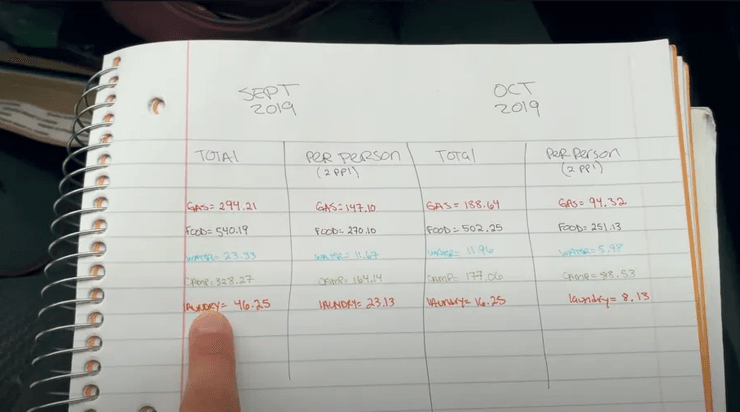 SEPT
2019
OCT
2019
TOTAL
PER PERSON
(2 PPl)
TOTAL
Per Person
(2 PPl)
GAS= 294.21
GAS= 147.10
GAS= 188.64
GAS= 94.32
FOOD= 540.19
FOOD= 270.10
FOOD= 502.25
FOOD= 251.13
WATER= 23.33
WATER= 11.67
WATER= 11.96
WATER= 5.98
CAMP= 328.27
CAMP= 164.14
CAMP= 177.06
CAMP= 88.53
LAUNDRY= 46.25
LAUNDRY= 23.13
LAUNDRY= 16.25
laundry= 8.13